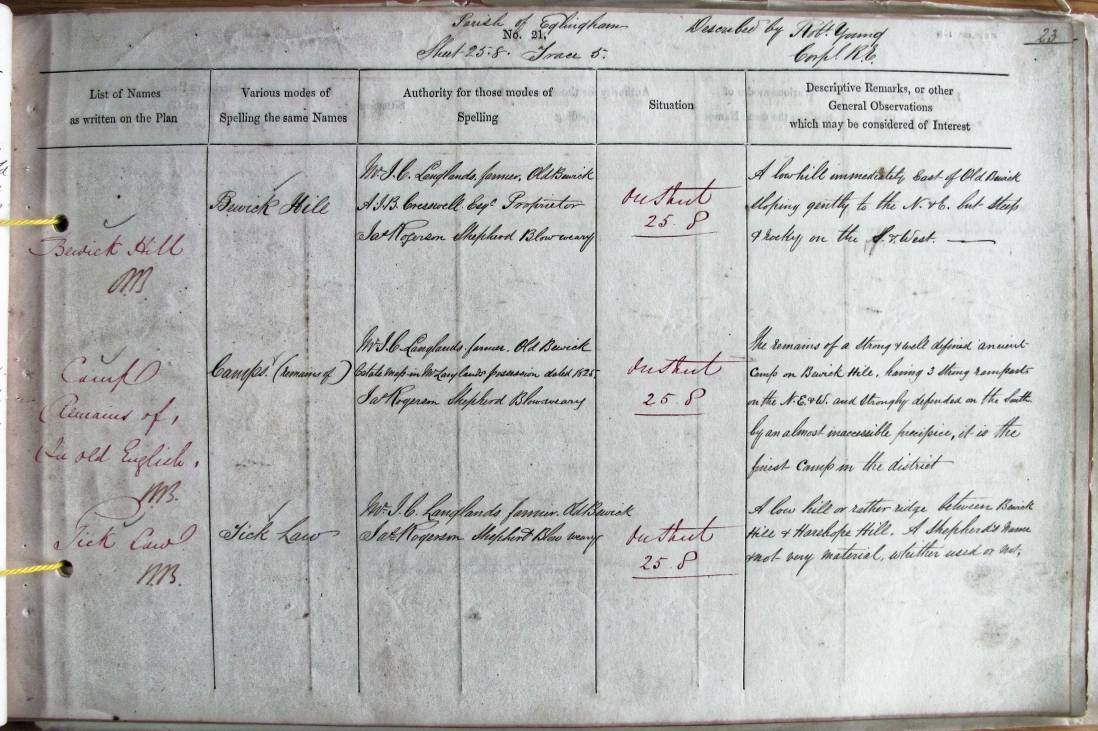 Parish of Eglingham
No. 21,
Sheet 25.8. Trace 5.
Described by Robt. Young
Corpl R.E.
23
List of Names
as written on the Plan
Various modes of
Spelling the same Names
Authority for those modes of
Spelling
Situation
Descriptive Remarks, or other
General Observations
which may be considered of Interest
Bewick Hill
Bewick Hill
Mr J.C. Langlands, farmer, Old Bewick
A.J.B. Cresswell Esqr Proprietor
Jas Rogerson Shepherd Blowweary
On Sheet
25 8
A low hill immediately East of Old Bewick
sloping gently to the N. & E. but steep
& rocky on the S. & West.
Camp
Remains of,
In old English.
Camps (remains of)
Mr J.C. Langlands. farmer. Old Bewick
Estate map in Mr Langlands possession dated 1825
Jas Rogerson Shepherd Blowweary
On Sheet
25 8
The remains of a strong & well defined ancient
Camp on Bewick Hill, having 3 strong ramparts
on the N.E. & W. and strongly defended on the South
by an almost inaccessible precipice, it is the
finest Camp in the district
Tick Law
Tick Law
Mr J.C. Langlands farmer. Old Bewick
Jas Rogerson Shepherd Blow weary
On Sheet
25 8
A low hill or rather ridge between Bewick
Hill & Harehope Hill. A Shepherd's name
& not very material, whether used or not,